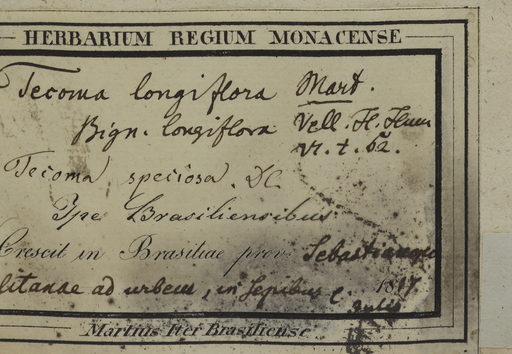 HERBARIUM REGIUM MONACENSE
Tecoma longiflora Mart.
Bign. longiflora Vell. Fl. Flum
VI. t. 62.
Tecoma speciosa. DC.
Ipe Brasiliensibus
Crescit in Brasiliae prov. Sebastianopo
litanae ad urbem, in sepibus 1817
Martius Iter Brasiliense